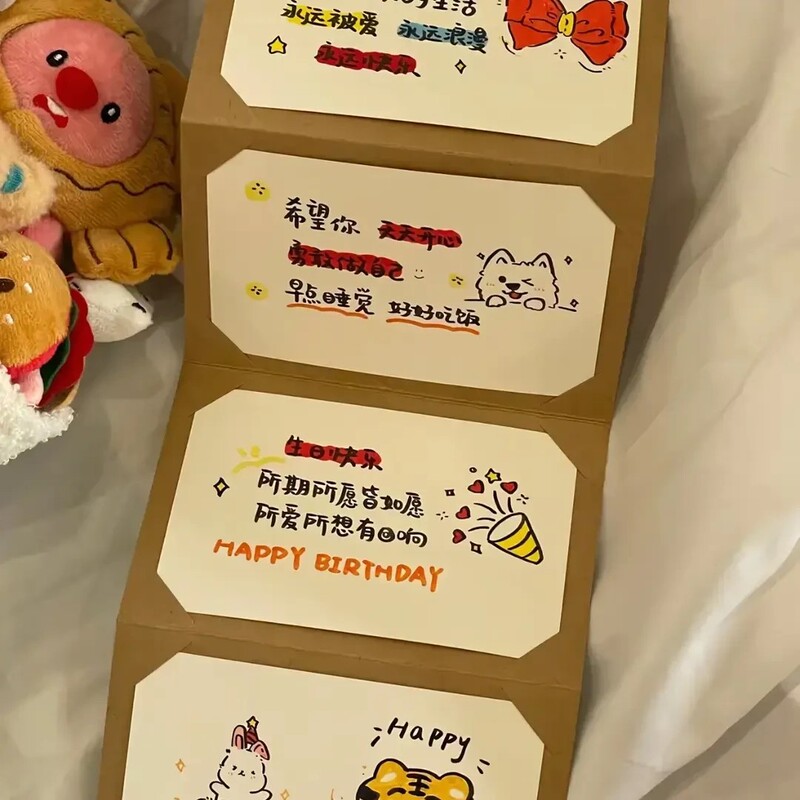 的生活
永远被爱 永远浪漫
永远快乐
希望你 天天开心
勇敢做自己
早点睡觉 好好吃饭
生日快乐
所期所愿皆如愿
所爱所想有回响
HAPPY BIRTHDAY
Happy